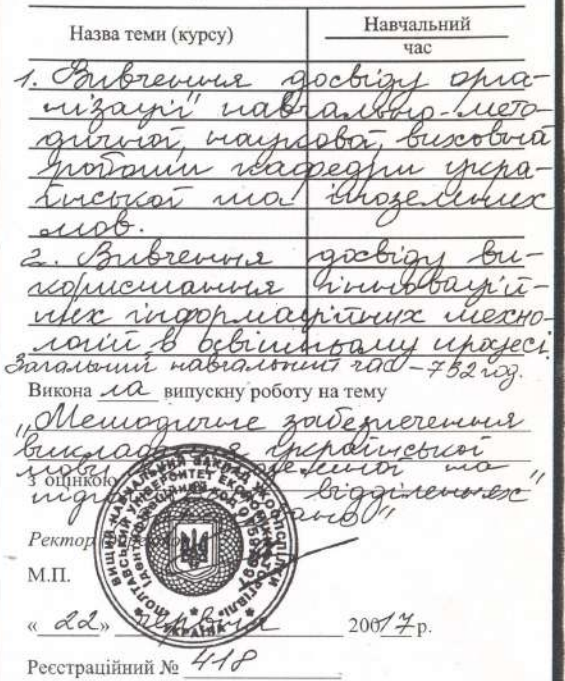 Назва теми (курсу)
Навчальний
час
1. Вивчення досвіду орга-
нізації навчально-мето-
дичної, наукової, виховної
роботи кафедри укра-
їнської та іноземних
мов.
2. Вивчення досвіду ви-
користання інновацій-
них інформаційних техно-
логій в освітньому процесі.
Загальний навчальний час – 752 год.
Викона ла випускну роботу на тему
„Методичне забезпечення
викладання української
мови
з оцінкою відділеннях"
Ректор
М.П.
« 22 » червня 20017 р.
Реєстраційний № 418
ВИЩИЙ НАВЧАЛЬНИЙ ЗАКЛАД УКООПСПІЛКИ
«ПОЛТАВСЬКИЙ УНІВЕРСИТЕТ ЕКОНОМІКИ І ТОРГІВЛІ»
УКРАЇНА